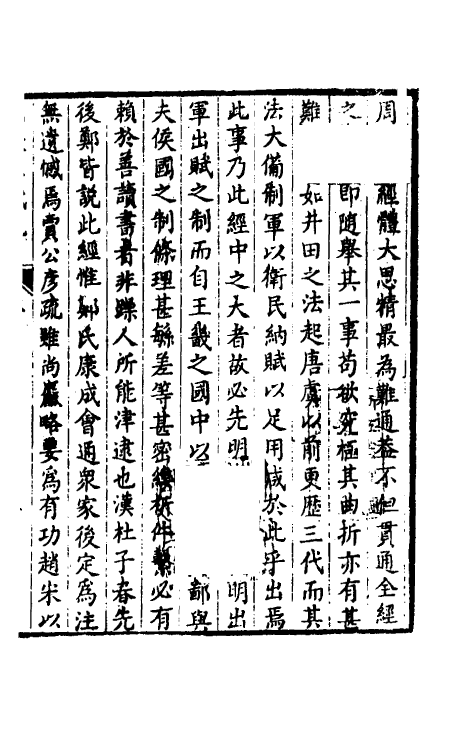 周 經體大思精最為難通蓋不但貫通全經
之 即隨舉其一事苟欲究極其曲折亦有甚
難 如井田之法起唐虞以前更歷三代而其
法大備制軍以衛民納賦以足用咸於此乎出焉
此事乃此經中之大者故必先明 明出
軍出賦之制而自王畿之國中以 鄙與
夫侯國之制條理甚緐差等甚密 析件繫必有
賴於善讀書者非躁人所能津逮也漢杜子春先
後鄭皆說此經惟鄭氏康成會通衆家後定為注
無遺憾焉賈公彥疏雖尚嚴略要爲有功趙宋以